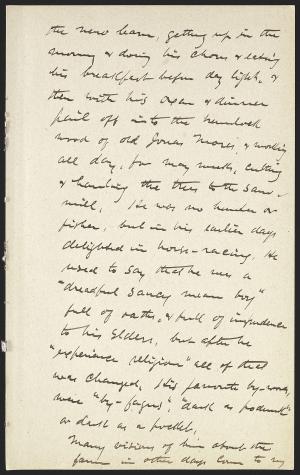 the new barn, getting up in the
morning & doing his chores & eating
his breakfast before day light, &
then with his oxen & dinner
pail off into the hemlock
wood of old Jonas More's, & working
all day, for many weeks, cutting
& hauling the trees to the saw-
mill. He was no hunter or
fisher, but in his earlier days
delighted in horse-racing. He
used to say that he was a
"dreadful saucy mean boy"
full of oaths, & full of impudence
to his Elders, but after he
"experience religion" all of that
was changed. His favorite by-words
were "by-fagus"; "dark as podunk"
or dark as a pocket.
Many visions of him about the
farm in other days come to my